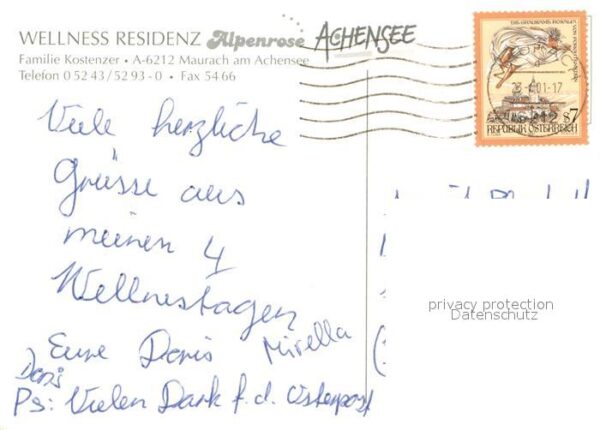 WELLNESS RESIDENZ Alpenrose ACHENSEE
Familie Kostenzer • A-6212 Maurach am Achensee
Telefon 0 52 43/52 93 - 0 • Fax 54 66
Viele herzliche
Grüsse aus
meinen 4
Wellnestagen
Eure Doris Mirella
Doris
Ps: Vielen Dank f. d. Osterpost
01-17
6212
S7
REPUBLIK ÖSTERREICH
privacy protection
Datenschutz